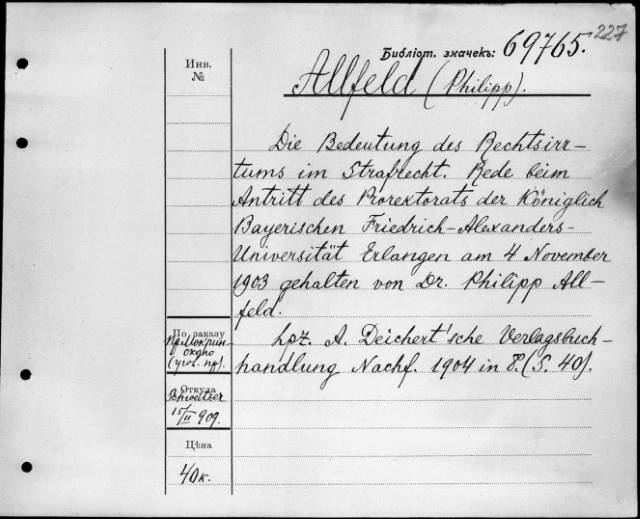 227
Библіот. значекъ: 69765.
Инв.
№
Allfeld (Philipp).
Die Bedeutung des Rechtsirr-
tums im Strafrecht. Rede beim
Antritt des Prorektorats der Königlich
Bayerischen Friedrich-Alexanders-
Universität Erlangen am 4 November
1903 gehalten von Dr. Philipp All-
feld.
Lpz. A. Deichert'sche Verlagsbuch-
handlung Nachf. 1904 in 8. (S. 40).
По заказу
(угол. пр).
Откуда
Schweitzer
15/II 909.
Цѣна
40к.